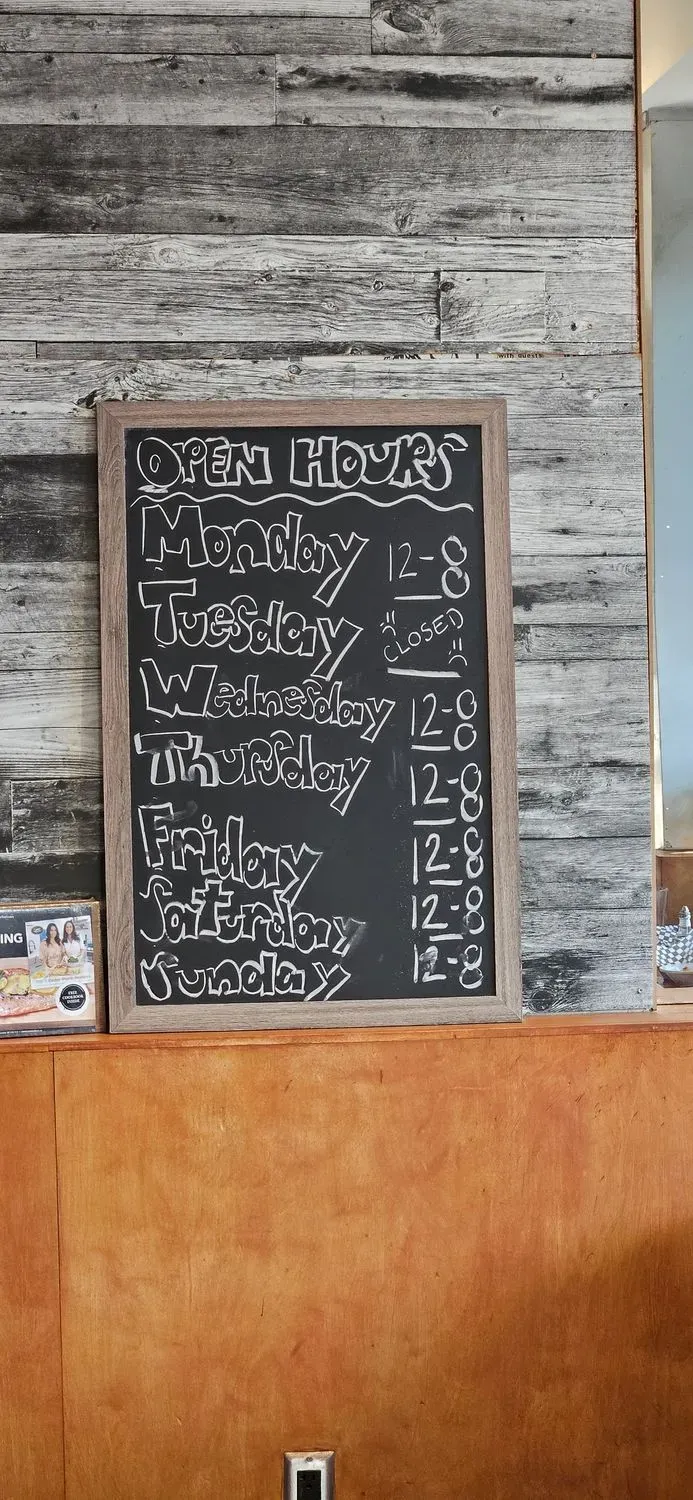 with guests
OPEN HOURS
Monday 12-8
Tuesday "CLOSED"
Wednesday 12-8
Thursday 12-8
Friday 12-8
Saturday 12-8
Sunday 12-8
ING
FREE
COOKBOOK
INSIDE